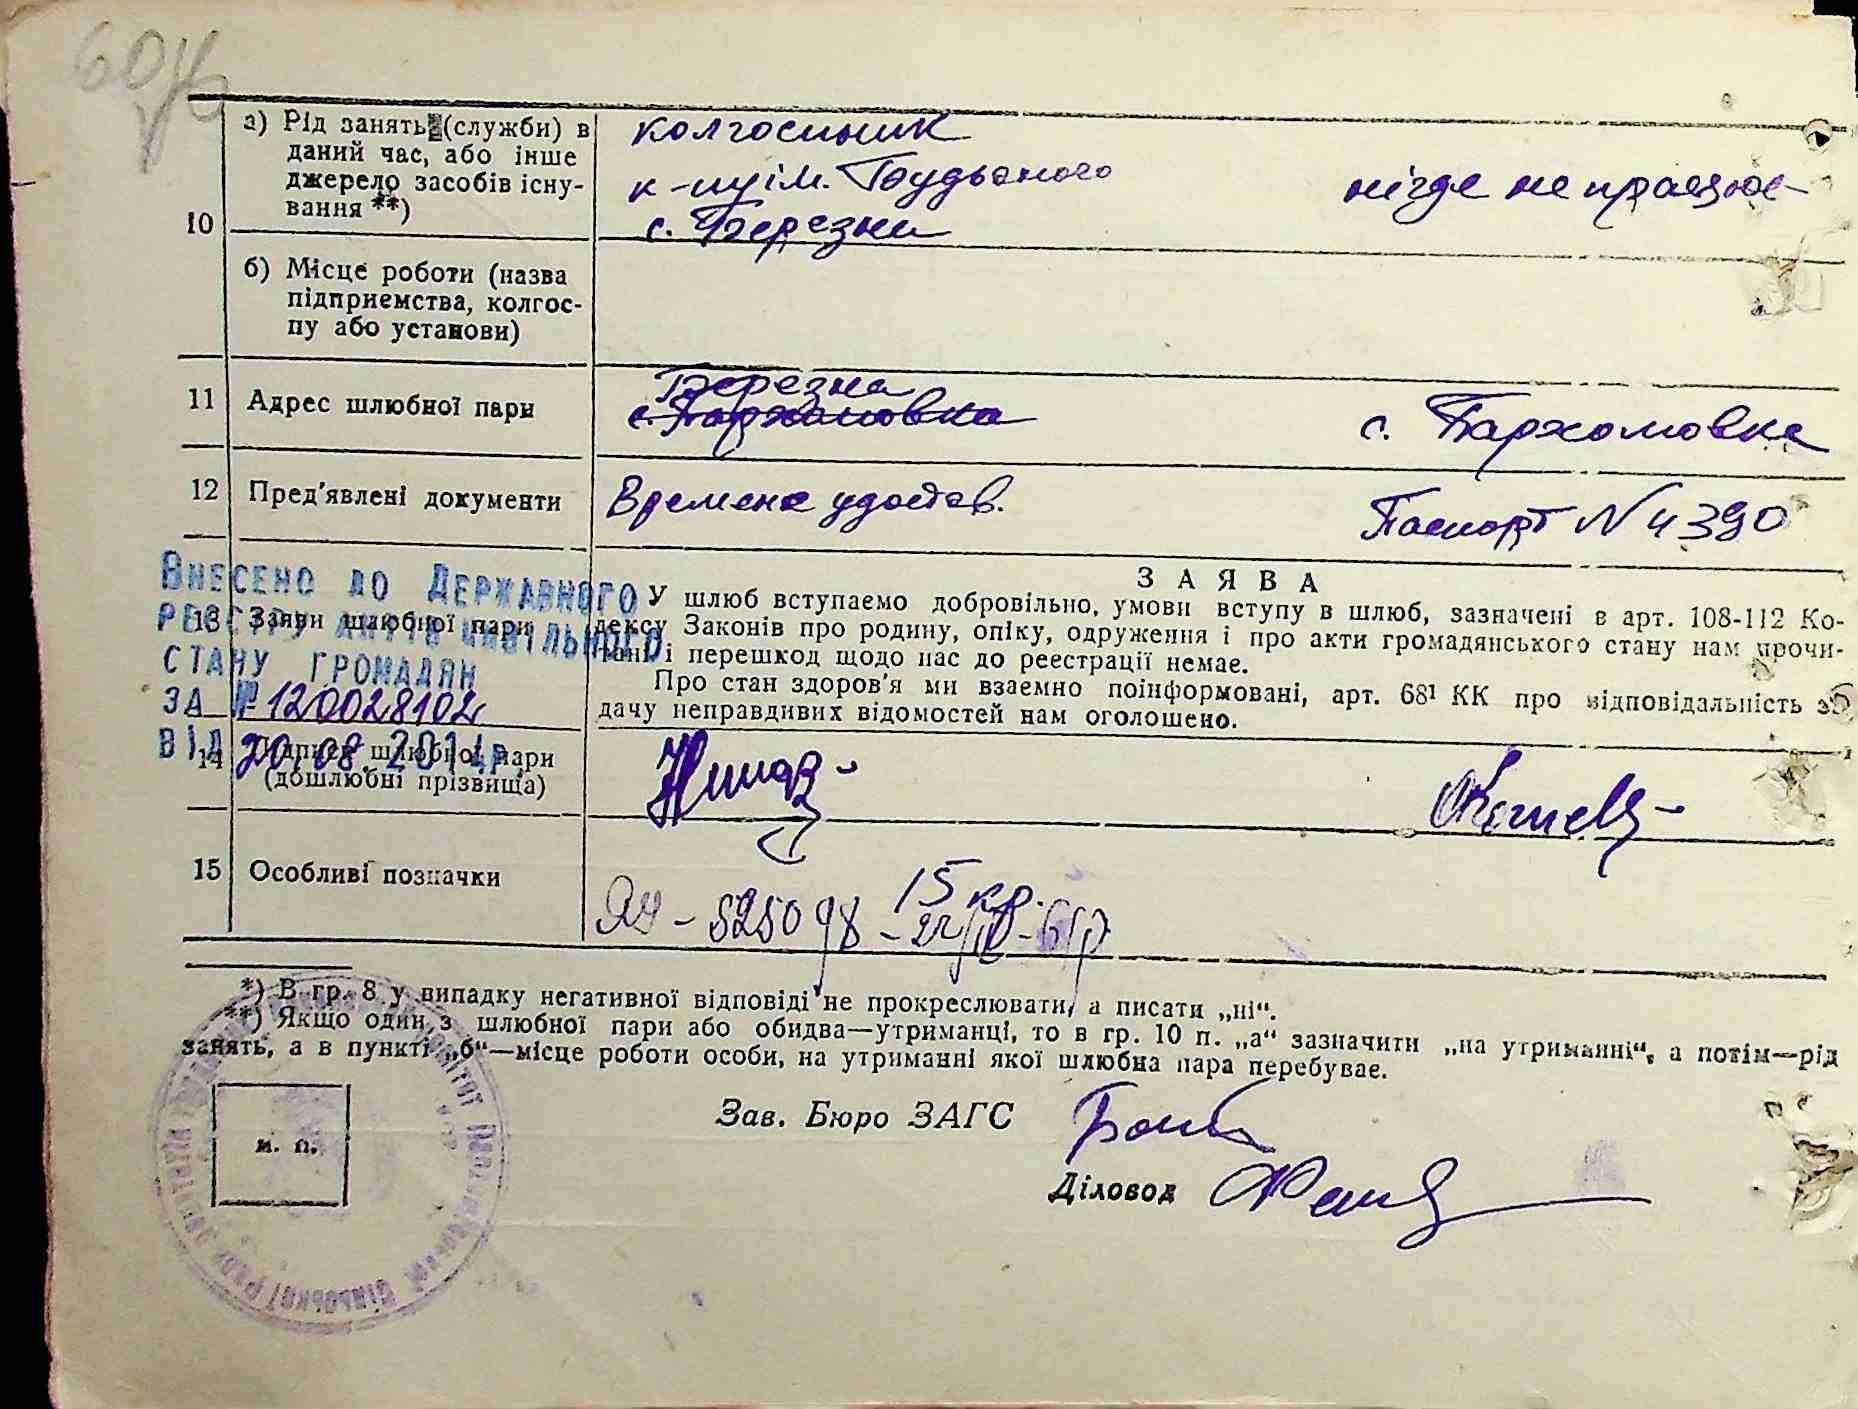 60
10
а) Рід занять (служби) в
даний час, або інше
джерело засобів існу-
вання **)
колгоспник
к-пу ім. Будьоного
с. Березни
нігде не працює
б) Місце роботи (назва
підприємства, колгос-
пу або установи)
11 Адрес шлюбної пари
Березна
с. Пархомовка
с. Пархомовка
12 Пред'явлені документи
Времене удостов.
Паспорт N 4390
Внесено до Державного
реєстру актів цивільного
стану громадян
за № 120028102
від 20.08.2014р.
ЗАЯВА
13 Заяви шлюбної пари
У шлюб вступаємо добровільно, умови вступу в шлюб, зазначені в арт. 108-112 Ко-
дексу Законів про родину, опіку, одруження і про акти громадянського стану нам прочи-
тані і перешкод щодо нас до реєстрації немає.
Про стан здоров'я ми взаємно поінформовані, арт. 68¹ КК про відповідальність за
дачу неправдивих відомостей нам оголошено.
14 Підписи шлюбної пари
(дошлюбні прізвища)
15 Особливі позначки
15 кр.
525098
*) В гр. 8 у випадку негативної відповіді не прокреслювати, а писати „ні“.
**) Якщо один з шлюбної пари або обидва—утриманці, то в гр. 10 п. „а“ зазначити „на утриманні“, а потім—рід
занять, а в пункті „б“—місце роботи особи, на утриманні якої шлюбна пара перебуває.
м. п.
Зав. Бюро ЗАГС
Діловод